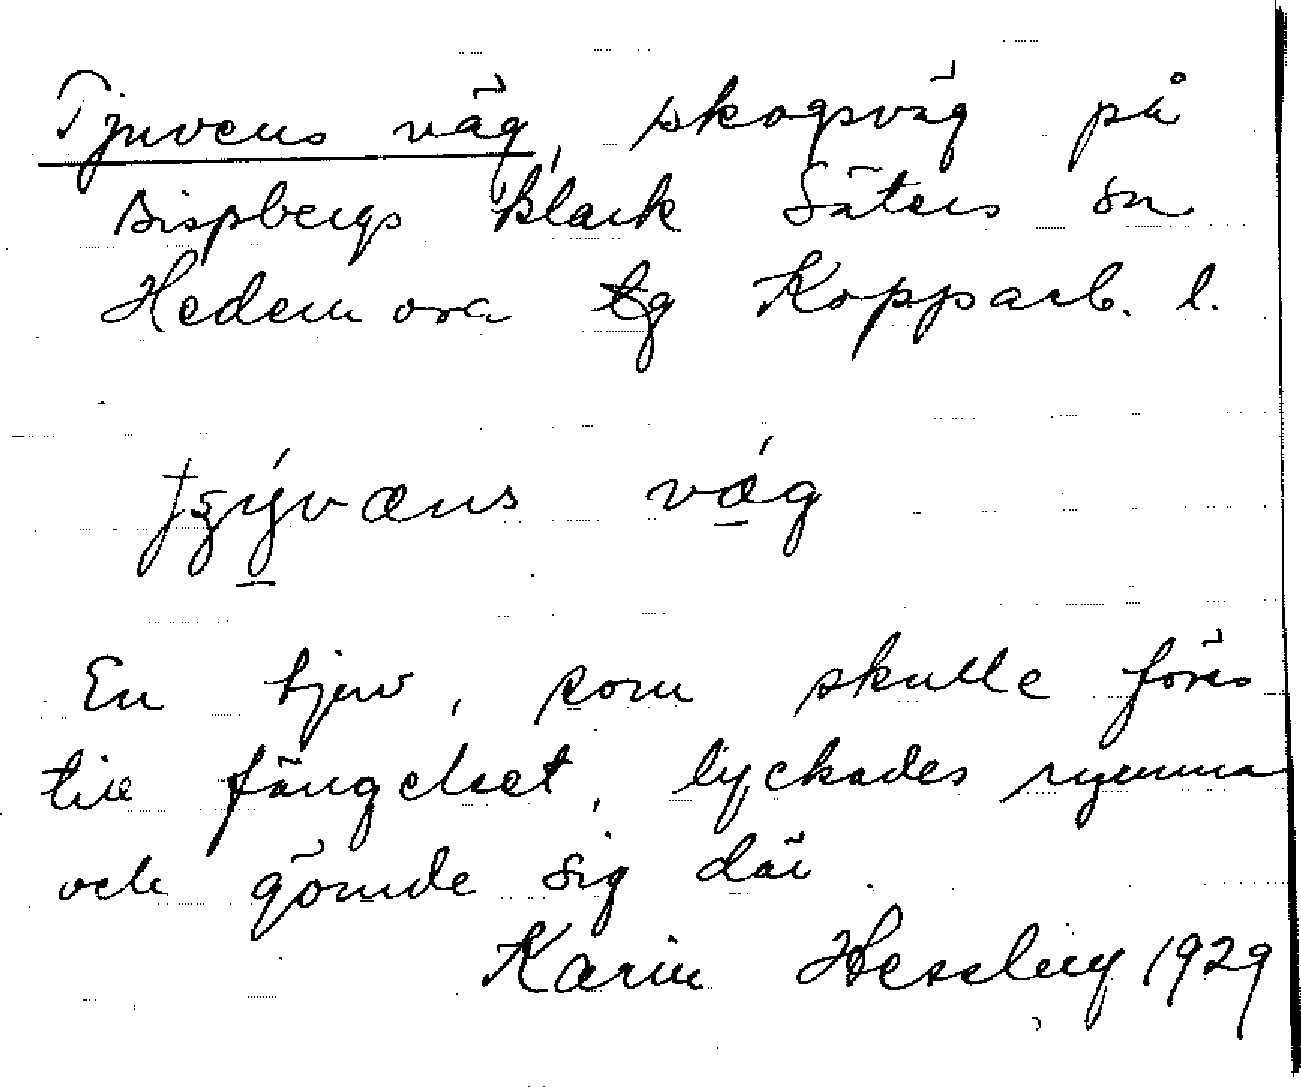 Tjuvens väg, skogsväg på
Bispbergs klack Säters sn
Hedemora tg Kopparb. l.
väg
En tjuv, som skulle föras
till fängelset, lyckades rymma
och gömde sig där.
Karin Hessling 1929